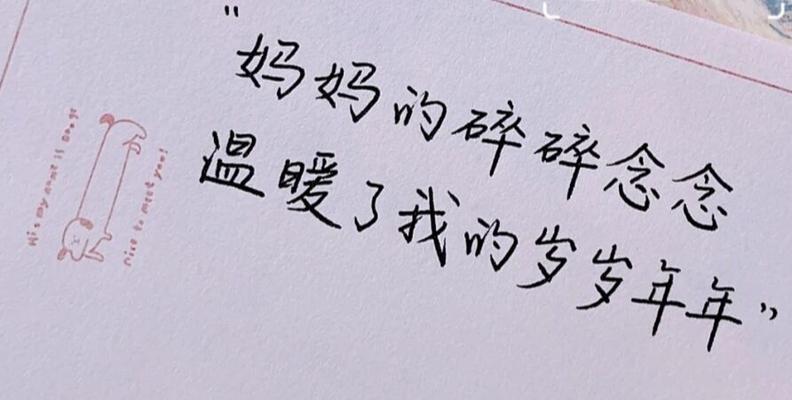 "妈妈的碎碎念念
温暖了我的岁岁年年"
His my name is
nice to meet you!